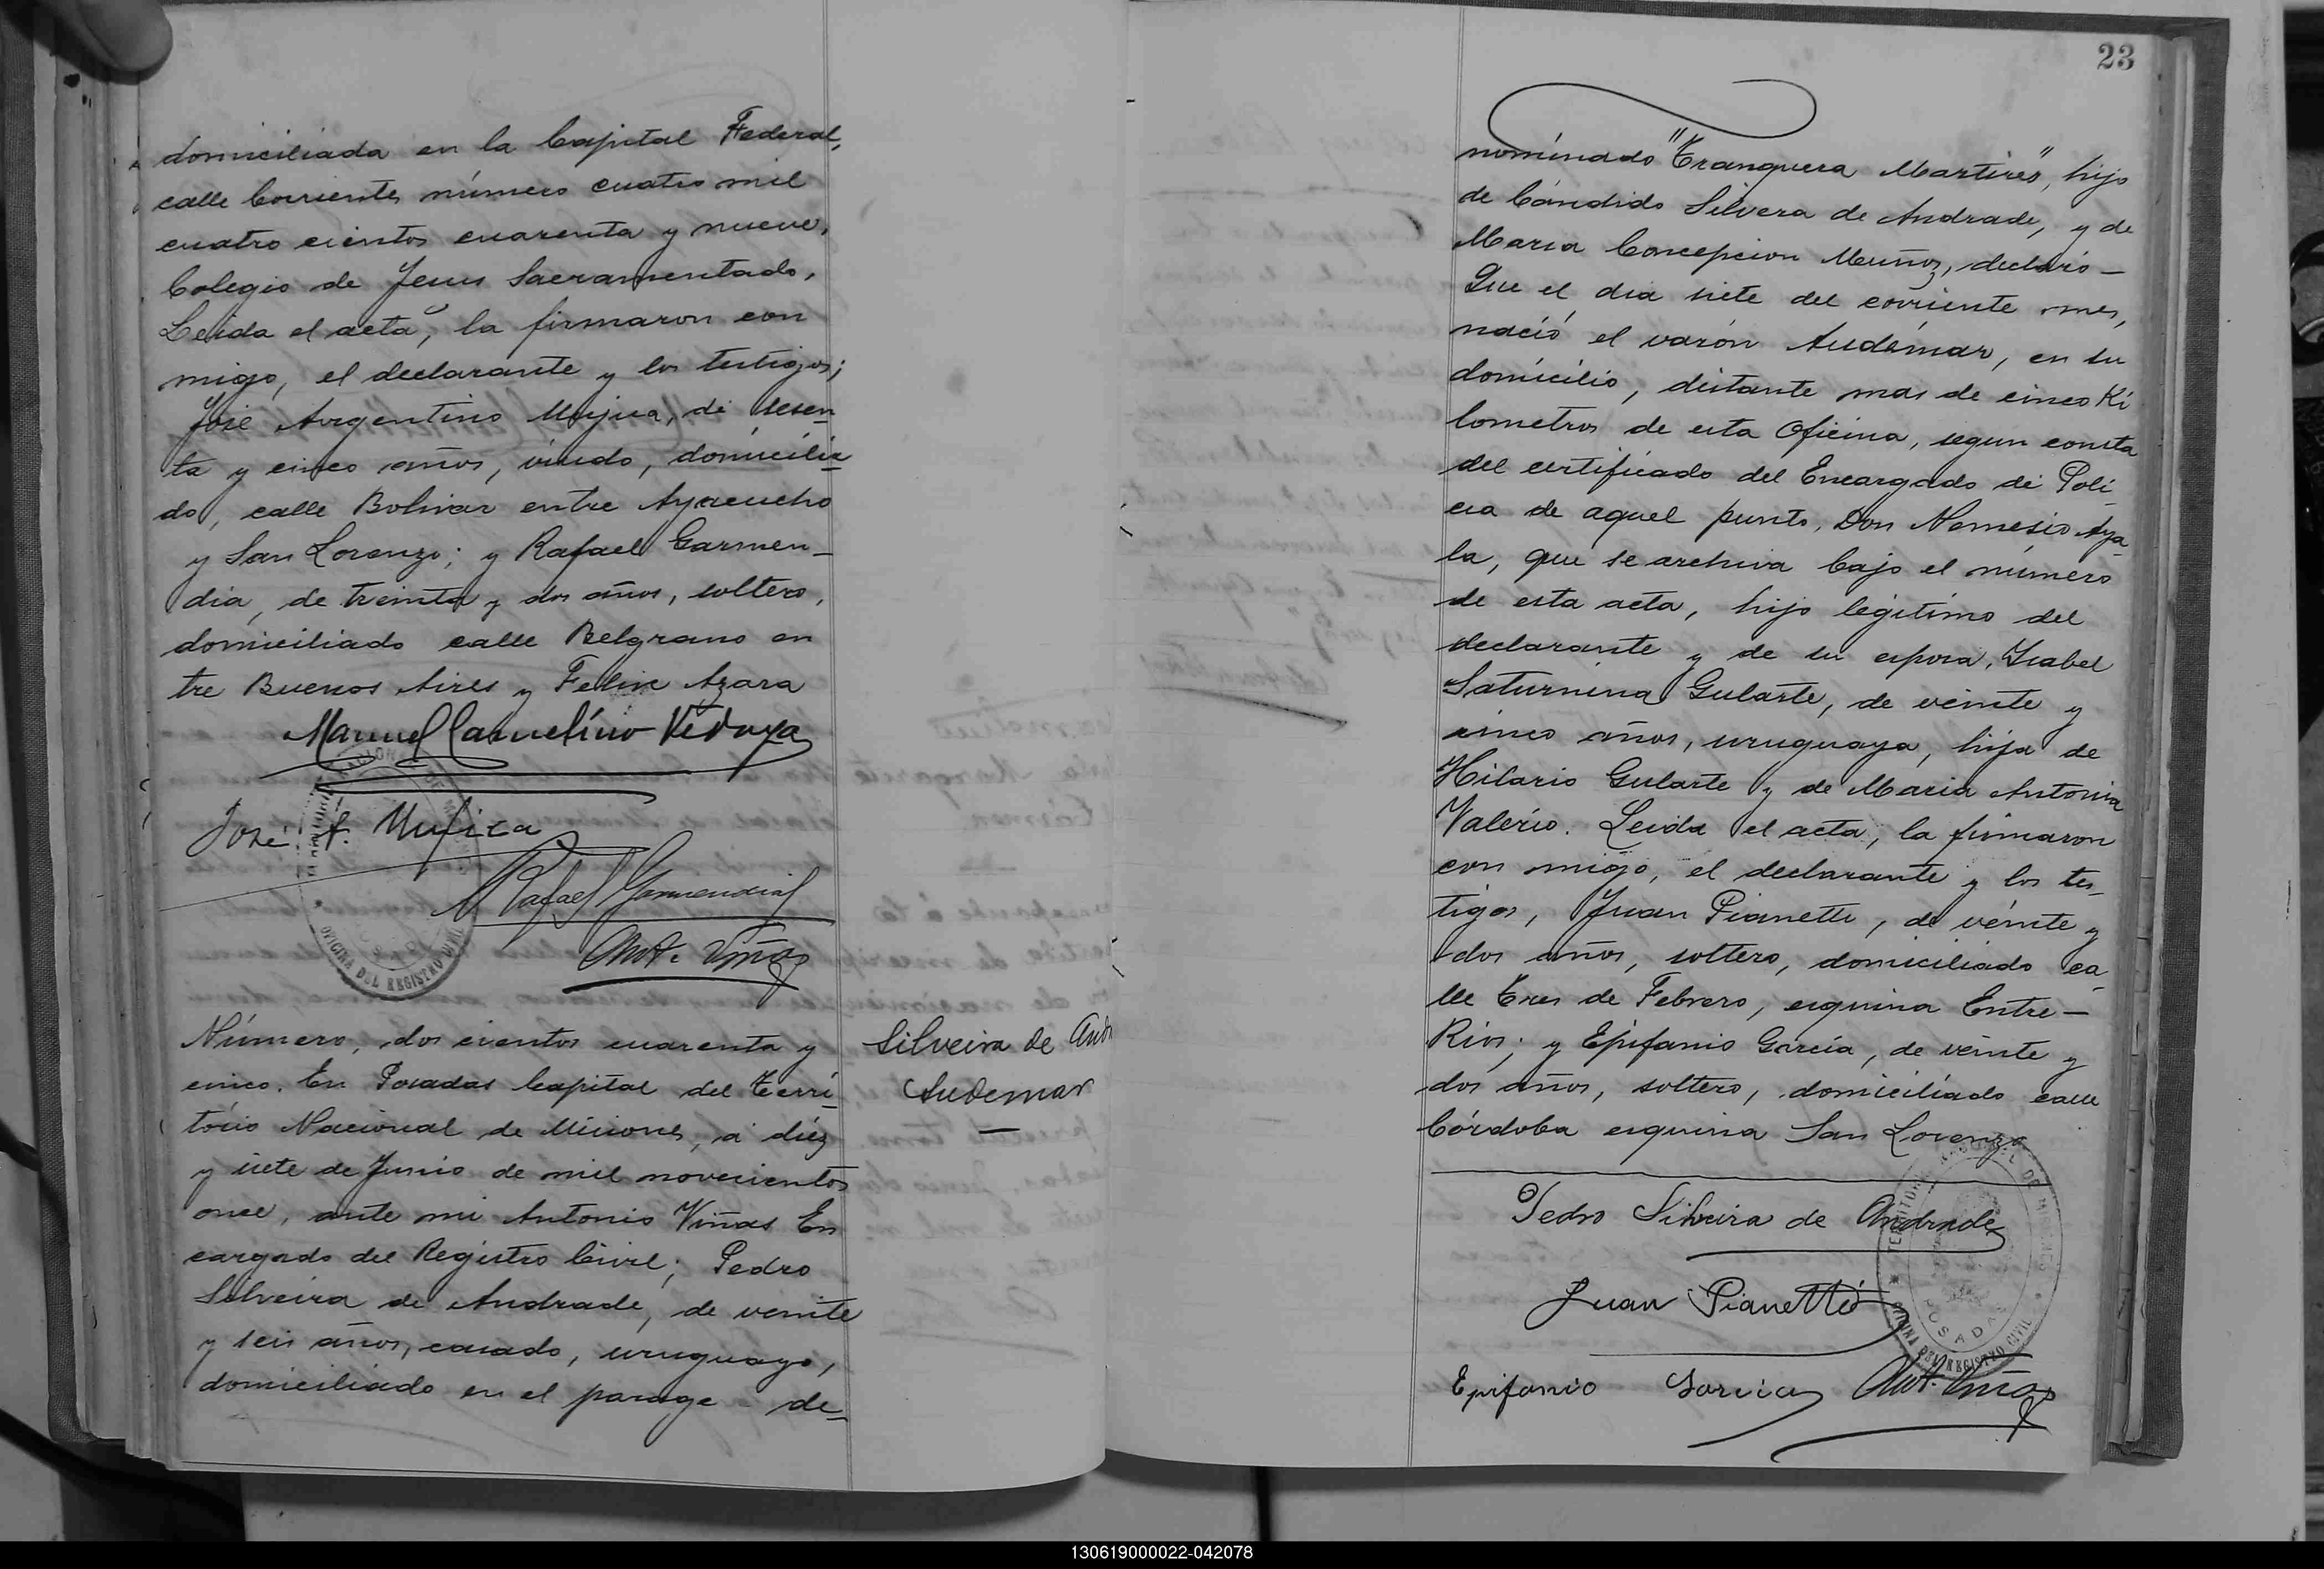 domiciliada en la Capital Federal,
calle Corrientes número cuatro mil
cuatro cientos cuarenta y nueve,
Colegio de Jesus Sacramentado,
Leida el acta, la firmaron con
migo, el declarante y los testigos;
José Argentino Mujica, de sesen
ta y cinco años, viudo, domicilia
do, calle Bolivar entre Ayacucho
y San Lorenzo; y Rafael Garmen-
dia, de treinta y dos años, soltero,
domiciliado calle Belgrano en
tre Buenos Aires y Felix Azara
Manuel Camelino Vedoya
José A. Mujica
Rafael Garmendia
Ant. Viñas
OFICINA DEL REGISTRO CIVIL
Número, dos cientos cuarenta y
cinco. En Posadas Capital del Terri-
tório Nacional de Misiones, á diéz
y siete de Junio de mil novecientos
once, ante mi Antonio Viñas En
cargado del Registro Civil; Pedro
Silveira de Andrade, de veinte
y seis años, casado, uruguayo,
domiciliado en el parage de-
Silveira de Andr
Audemar
23
nominado "Tranquera Martires", hijo
de Cándido Silvera de Andrade, y de
Maria Concepcion Muñoz, declaró-
Que el dia siete del corriente mes,
nació el varón Audémar, en su
domicilio, distante mas de cinco Ki
lometros de esta Oficina, segun consta
del certificado del Encargado de Poli-
cia de aquel punto, Don Nemesio Aya-
la, que se archiva bajo el número
de esta acta, hijo legitimo del
declarante y de su esposa, Isabel
Saturnina Gularte, de veinte y
cinco años, uruguaya, hija de
Hilario Gularte y de Maria Antonia
Valério. Leida el acta, la firmaron
con migo, el declarante y los tes-
tigos, Juan Pianetti, de veinte y
dos años, soltero, domiciliado ca-
lle Tres de Febrero, esquina Entre-
Rios; y Epifanio Garcia, de veinte y
dos años, soltero, domiciliado calle
Córdoba esquina San Lorenzo
Pedro Silveira de Andrade
Juan Pianetti
Epifanio Garcia Ant. Viñas
TERRITORIO NACIONAL DE MISIONES
POSADAS
OFICINA DEL REGISTRO CIVIL
130619000022-042078